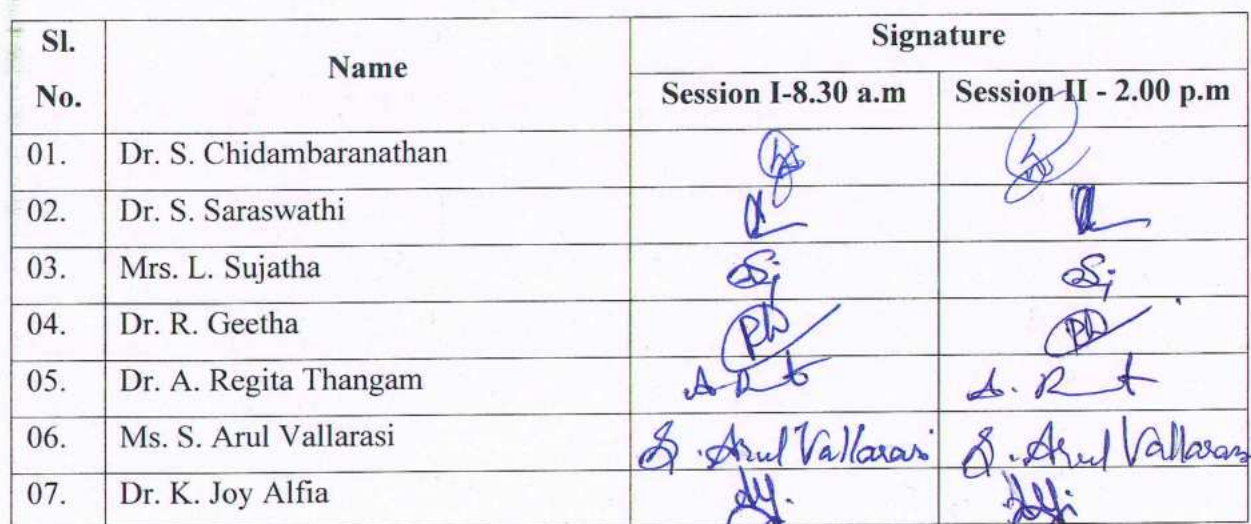 Sl. No. Name Signature
Session I-8.30 a.m Session II - 2.00 p.m
01. Dr. S. Chidambaranathan
02. Dr. S. Saraswathi
03. Mrs. L. Sujatha
04. Dr. R. Geetha
05. Dr. A. Regita Thangam
06. Ms. S. Arul Vallarasi S. Arul Vallarasi S. Arul Vallarasi
07. Dr. K. Joy Alfia